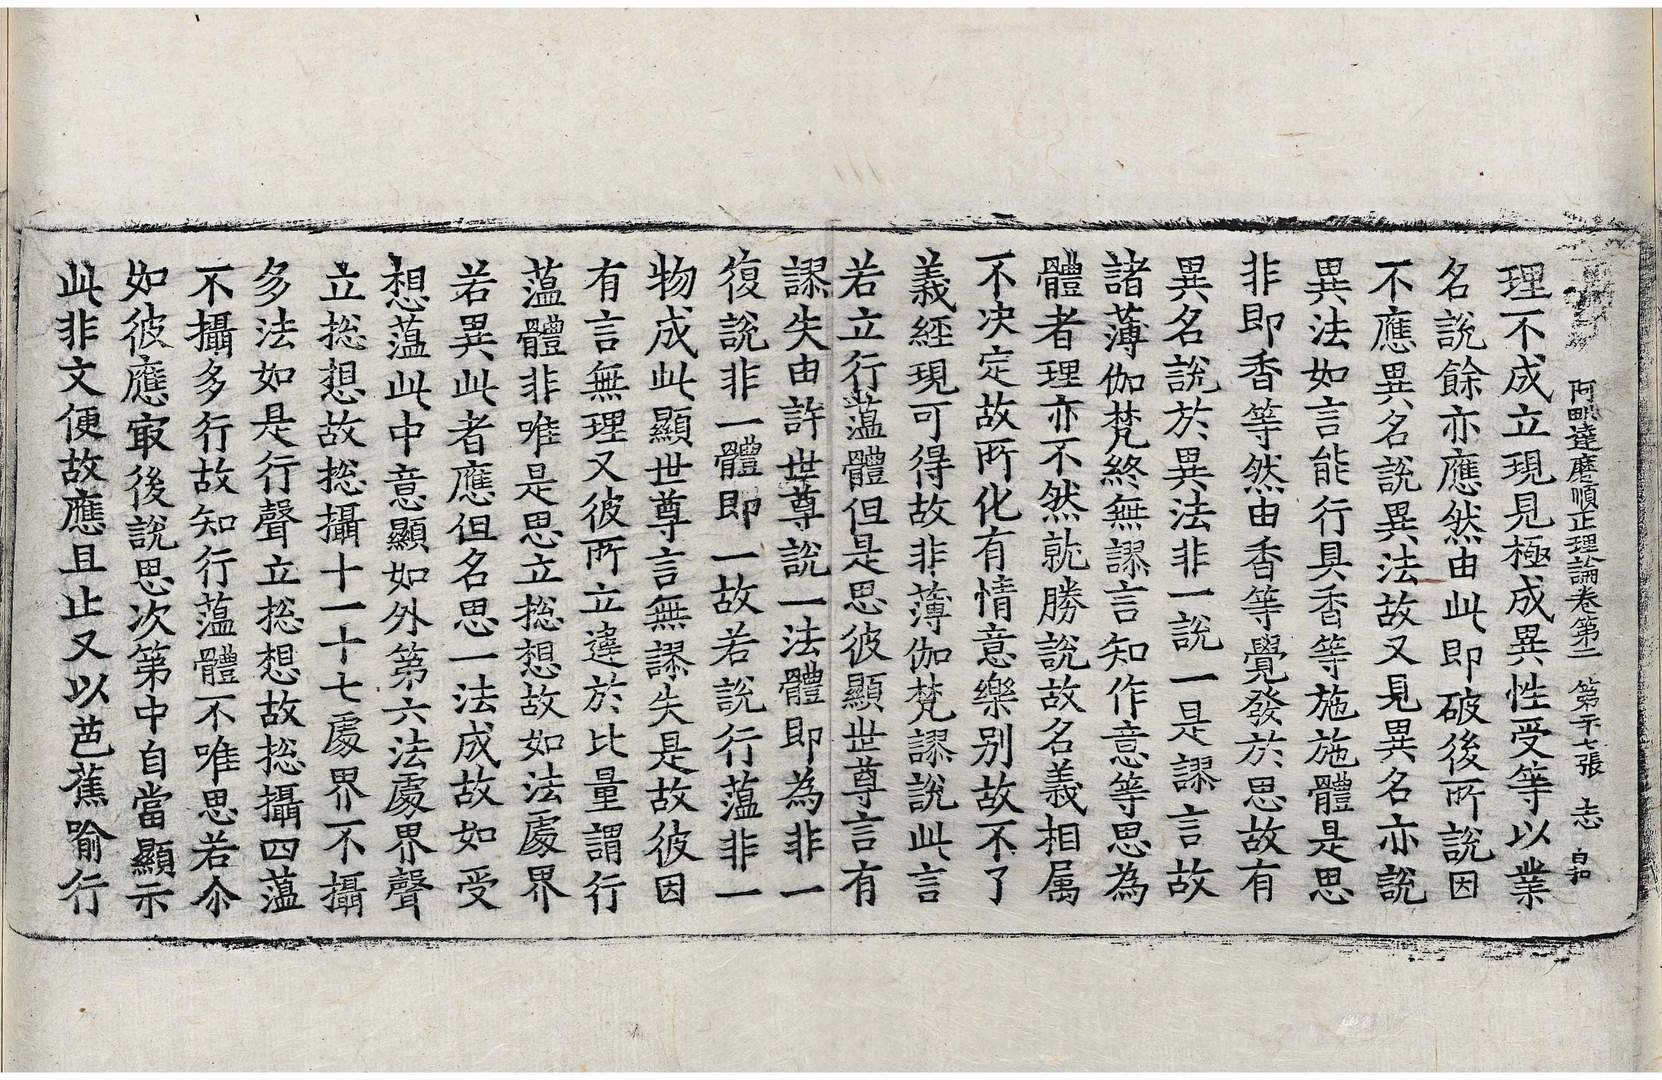 阿毗達磨順正理論卷第二 第二十七張 志
理不成立現見極成異性受等以業
名說餘亦應然由此即破後所說因
不應異名說異法故又見異名亦說
異法如言能行具香等施施體是思
非即香等然由香等覺發於思故有
異名說於異法非一說一是謬言故
諸薄伽梵終無謬言知作意等思為
體者理亦不然就勝說故名義相属
不决定故所化有情意樂別故不了
義經現可得故非薄伽梵謬說此言
若立行薀體但是思彼顯世尊言有
謬失由許世尊說一法體即為非一
復說非一體即一故若說行薀非一
物成此顯世尊言無謬失是故彼因
有言無理又彼所立違於比量謂行
薀體非唯是思立揔想故如法處界
若異此者應但名思一法成故如受
想薀此中意顯如外第六法處界聲
立揔想故揔攝十一十七處界不攝
多法如是行聲立揔想故揔攝四薀
不攝多行故知行薀體不唯思若尒
如彼應㝡後說思次第中自當顯示
此非文便故應且止又以芭蕉喻行